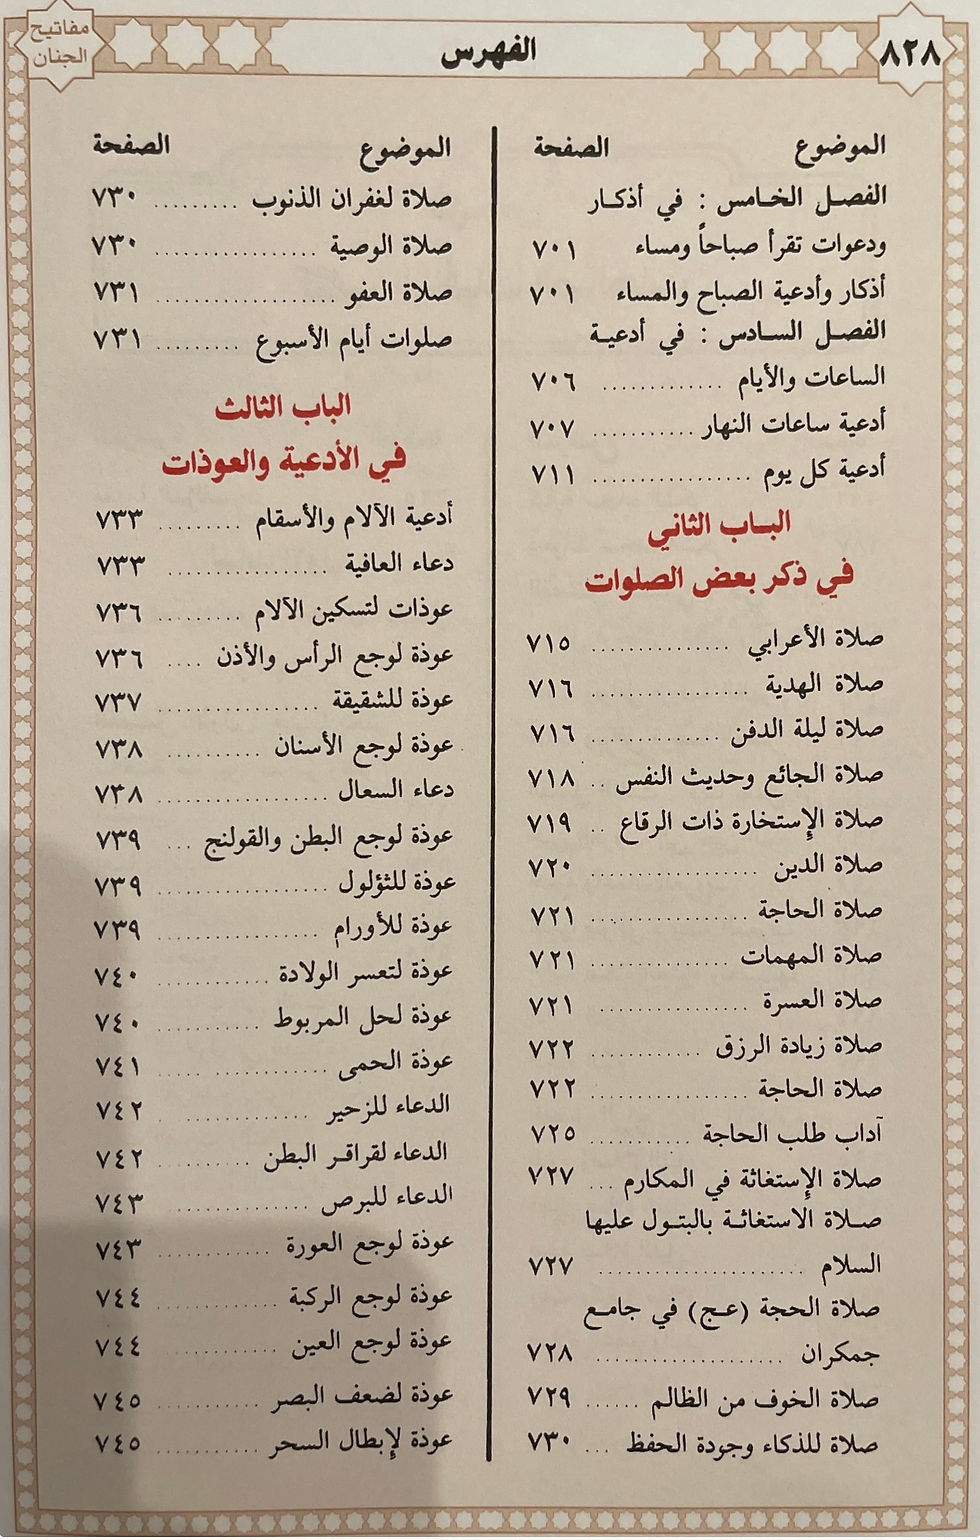 ٨٢٨
الفهرس
مفاتيح
الجنان
الموضوع الصفحة
الفصل الخامس : في أذكار
ودعوات تقرأ صباحاً ومساء ٧٠١
أذكار وأدعية الصباح والمساء ٧٠١
الفصل السادس : في أدعية
الساعات والأيام ............. ٧٠٦
أدعية ساعات النهار ........... ٧٠٧
أدعية كل يوم ................. ٧١١
الباب الثاني
في ذكر بعض الصلوات
صلاة الأعرابي ............... ٧١٥
صلاة الهدية ................. ٧١٦
صلاة ليلة الدفن .............. ٧١٦
صلاة الجائع وحديث النفس .. ٧١٨
صلاة الإستخارة ذات الرقاع .. ٧١٩
صلاة الدين .................. ٧٢٠
صلاة الحاجة ................. ٧٢١
صلاة المهمات ............... ٧٢١
صلاة العسرة ................ ٧٢١
صلاة زيادة الرزق ............ ٧٢٢
صلاة الحاجة ................. ٧٢٢
آداب طلب الحاجة ........... ٧٢٥
صلاة الإستغاثة في المكارم ... ٧٢٧
صلاة الاستغاثة بالبتول عليها
السلام ...................... ٧٢٧
صلاة الحجة (عج) في جامع
جمكران .................... ٧٢٨
صلاة الخوف من الظالم ...... ٧٢٩
صلاة للذكاء وجودة الحفظ ... ٧٣٠
الموضوع الصفحة
صلاة لغفران الذنوب ......... ٧٣٠
صلاة الوصية ................. ٧٣٠
صلاة العفو ................... ٧٣١
صلوات أيام الأسبوع ......... ٧٣١
الباب الثالث
في الأدعية والعوذات
أدعية الآلام والأسقام ......... ٧٣٣
دعاء العافية .................. ٧٣٣
عوذات لتسكين الآلام ......... ٧٣٦
عوذة لوجع الرأس والأذن .... ٧٣٦
عوذة للشقيقة ................. ٧٣٧
عوذة لوجع الأسنان .......... ٧٣٨
دعاء السعال .................. ٧٣٨
عوذة لوجع البطن والقولنج ... ٧٣٩
عوذة للثؤلول .................. ٧٣٩
عوذة للأورام ................. ٧٣٩
عوذة لتعسر الولادة ............ ٧٤٠
عوذة لحل المربوط ........... ٧٤٠
عوذة الحمى ................. ٧٤١
الدعاء للزحير ............. ٧٤٢
الدعاء لقراقر البطن .......... ٧٤٢
الدعاء للبرص ............... ٧٤٣
عوذة لوجع العورة ............ ٧٤٣
عوذة لوجع الركبة ............. ٧٤٤
عوذة لوجع العين ............ ٧٤٤
عوذة لضعف البصر ........... ٧٤٥
عوذة لإبطال السحر ........... ٧٤٥